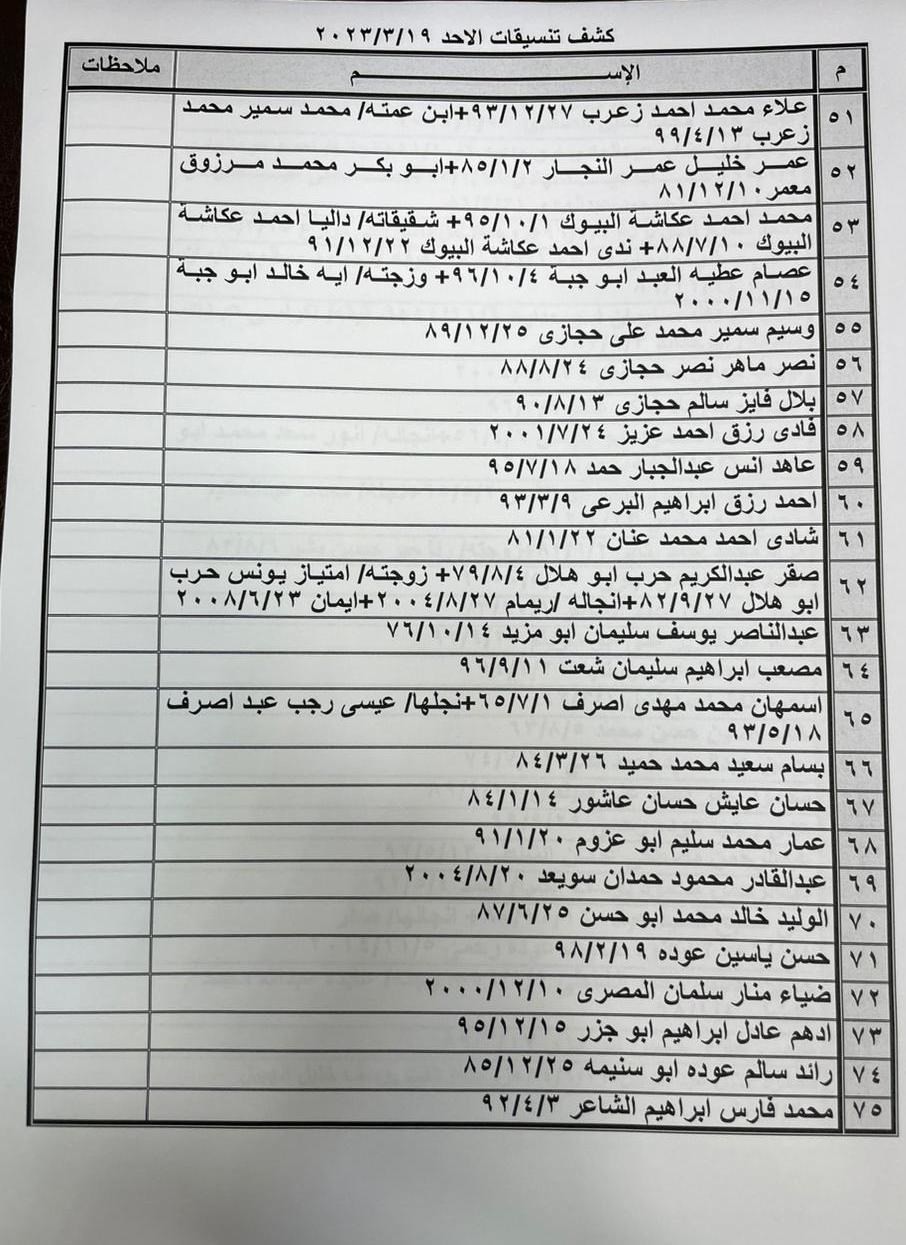 كشف تنسيقات الاحد ٢٠٢٣/٣/١٩
م الإســـــــــــــم ملاحظات
٥١ علاء محمد احمد زعرب ٩٣/١٢/٢٧+ابن عمته/ محمد سمير محمد
زعرب ٩٩/٤/١٣
٥٢ عمـر خليـل عمـر النجـار ٨٥/١/٢+ابـو بكـر محمـد مـرزوق
معمر ٨١/١٢/١٠
٥٣ محمد احمد عكاشة البيوك ٩٥/١٠/١+ شقيقاته/ داليا احمد عكاشة
البيوك ٨٨/٧/١٠+ ندى احمد عكاشة البيوك ٩١/١٢/٢٢
٥٤ عصام عطيه العبد ابو جبة ٩٦/١٠/٤+ وزجته/ ايه خالد ابو جبة
٢٠٠٠/١١/١٥
٥٥ وسيم سمير محمد على حجازى ٨٩/١٢/٢٥
٥٦ نصر ماهر نصر حجازى ٨٨/٨/٢٤
٥٧ بلال فايز سالم حجازى ٩٠/٨/١٣
٥٨ فادى رزق احمد عزيز ٢٠٠١/٧/٢٤
٥٩ عاهد انس عبدالجبار حمد ٩٥/٧/١٨
٦٠ احمد رزق ابراهيم البرعى ٩٣/٣/٩
٦١ شادى احمد محمد عنان ٨١/١/٢٢
٦٢ صقر عبدالكريم حرب ابو هلال ٧٩/٨/٤+ زوجته/ امتياز يونس حرب
ابو هلال ٨٢/٩/٢٧+انجاله /ريمام ٢٠٠٤/٨/٢٧+ايمان ٢٠٠٨/٦/٢٣
٦٣ عبدالناصر يوسف سليمان ابو مزيد ٧٦/١٠/١٤
٦٤ مصعب ابراهيم سليمان شعت ٩٦/٩/١١
٦٥ اسمهان محمد مهدى اصرف ٦٥/٧/١+نجلها/ عيسى رجب عبد اصرف
٩٣/٥/١٨
٦٦ بسام سعيد محمد حميد ٨٤/٣/٢٦
٦٧ حسان عايش حسان عاشور ٨٤/١/١٤
٦٨ عمار محمد سليم ابو عزوم ٩١/١/٢٠
٦٩ عبدالقادر محمود حمدان سويعد ٢٠٠٤/٨/٢٠
٧٠ الوليد خالد محمد ابو حسن ٨٧/٦/٢٥
٧١ حسن ياسين عوده ٩٨/٢/١٩
٧٢ ضياء منار سلمان المصرى ٢٠٠٠/١٢/١٠
٧٣ ادهم عادل ابراهيم ابو جزر ٩٥/١٢/١٥
٧٤ رائد سالم عوده ابو سنيمه ٨٥/١٢/٢٥
٧٥ محمد فارس ابراهيم الشاعر ٩٢/٤/٣